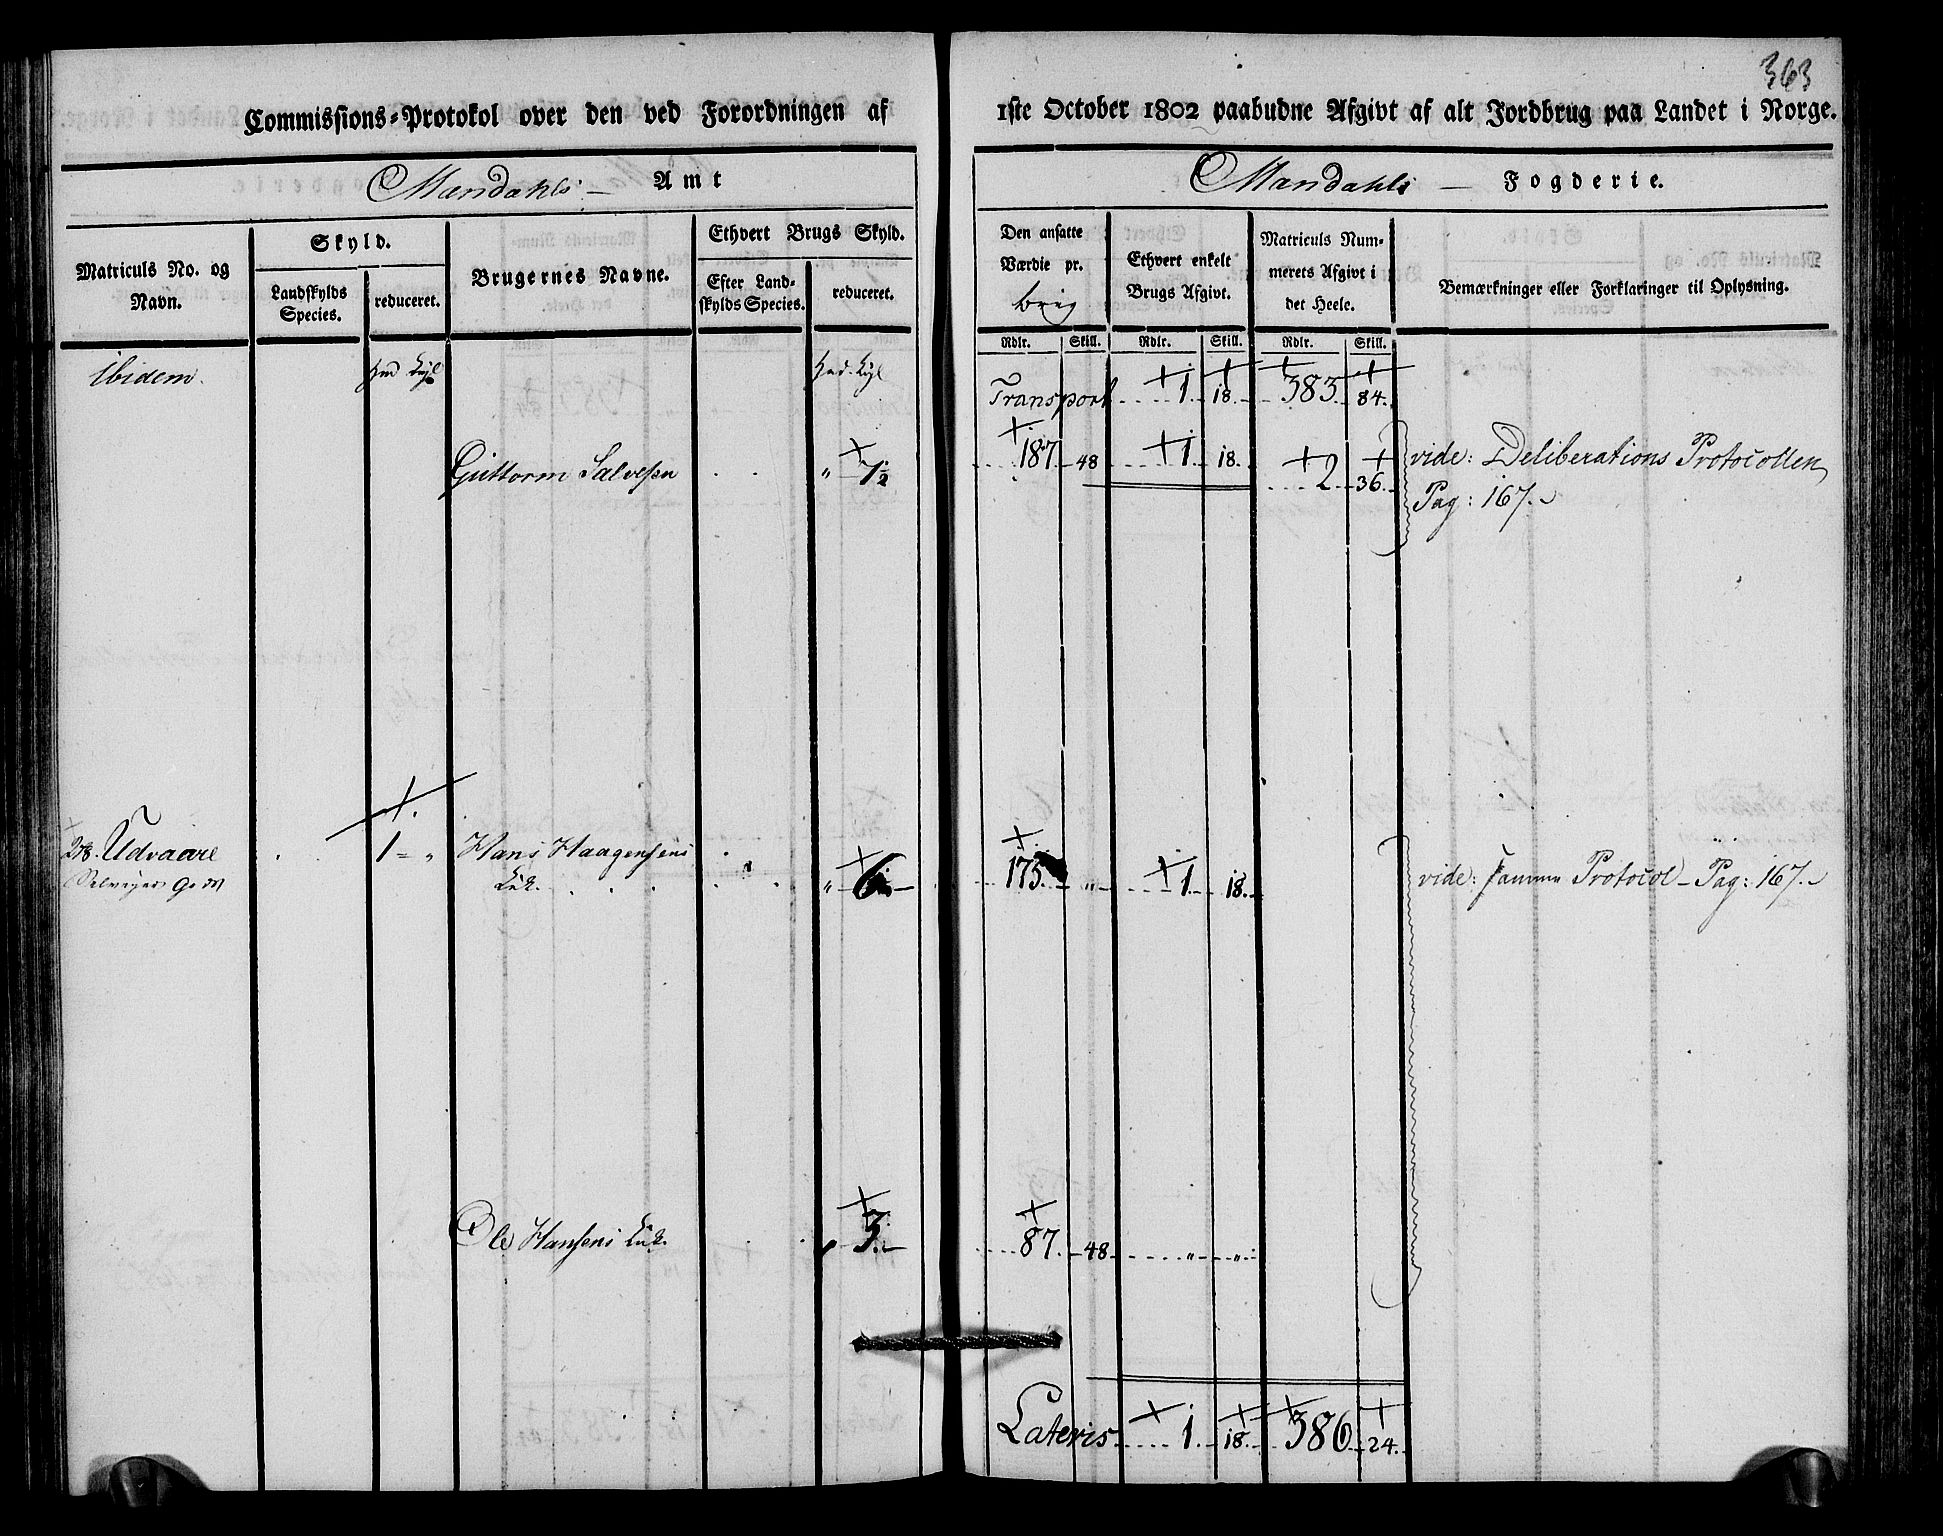 363
Commissions-Protokol over den ved Forordningen af 1ste October 1802 paabudne Afgivt af alt Jordbrug paa Landet i Norge.
Mandahls Amt
Mandahls Fogderie.
Matriculs No. og Navn.
Skyld.
Landskylds Species.
reduceret.
Brugernes Navne.
Ethvert Brugs Skyld.
Efter Landskylds Species.
reduceret.
Den ansatte Værdie pr.
Ethvert enkelt Brugs Afgivt.
Matriculs Nummerets Afgivt i det Heele.
Bemærkninger eller Forklaringer til Oplysning.
Rdlr. Skill. Rdlr. Skill. Rdlr. Skill.
Ibidem.
Transport 1 18. 383. 84.
Guttorm Salvesen " 1½ 187 48 1 18. 2 36. vide: Deliberations Protocollen
Pag: 167.
Udvaare 1 = " Hans Haagensens
" 6 175. " 1 18. vide: samme Protocol - Pag: 167.
Ole Hansens " 3. 87. 48 " "
Lateris 1 18. 386 24.